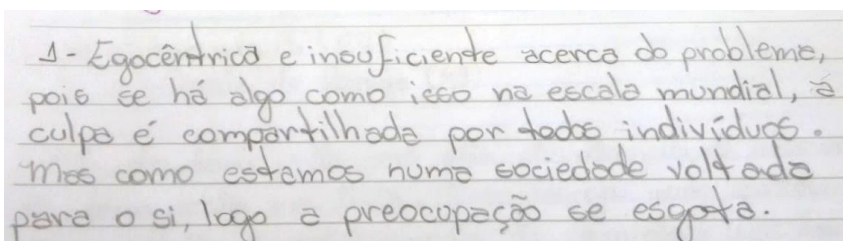 1- Egocêntrica e insuficiente acerca do problema,
pois se há algo como isso na escala mundial, a
culpa é compartilhada por todos indivíduos.
Mas como estamos numa sociedade voltada
para o si, logo a preocupação se esgota.